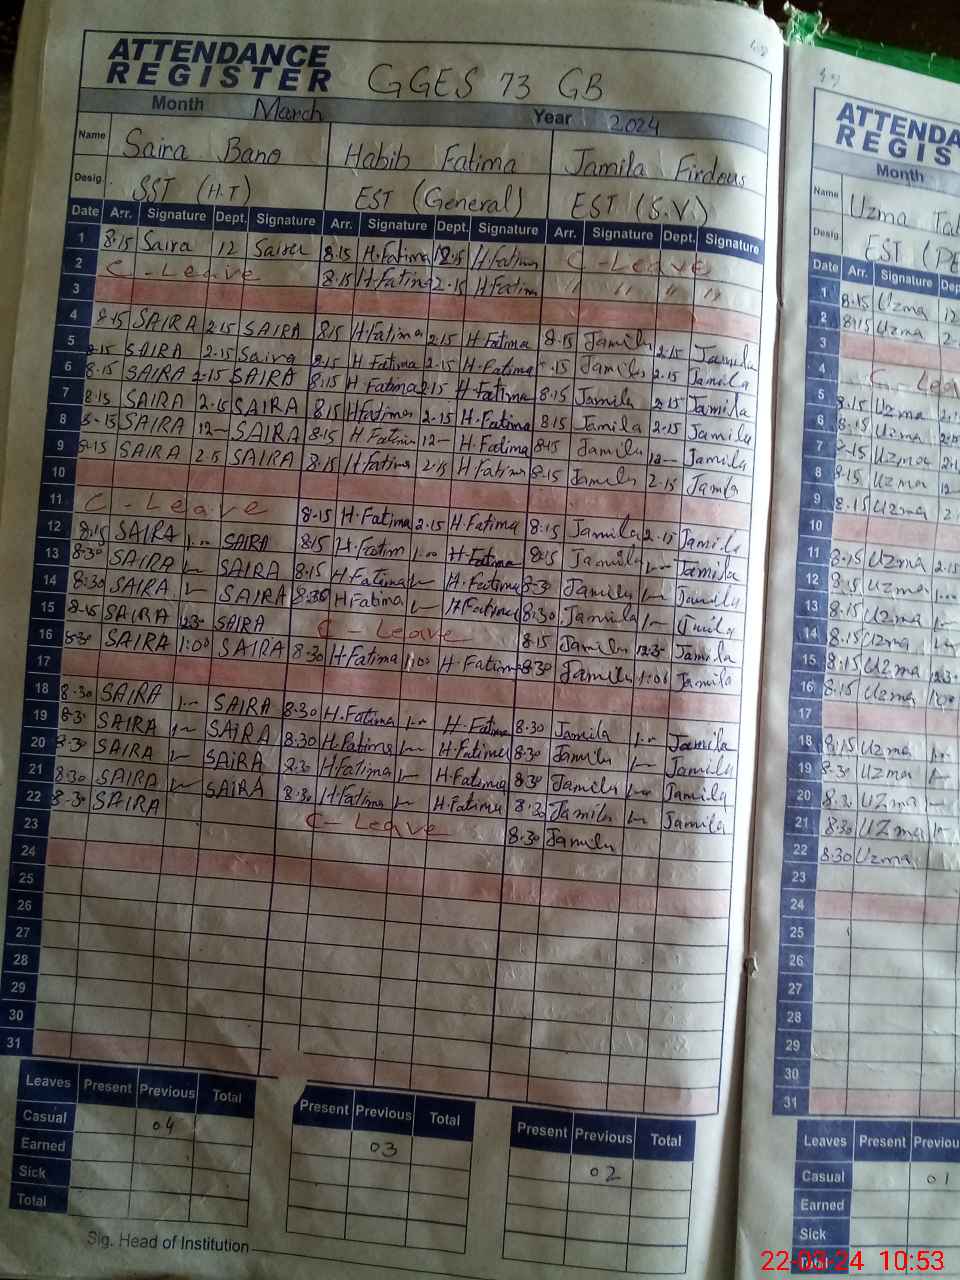 ATTENDANCE
REGISTER GGES 73 GB
Month March Year 2024
Name Saira Bano Habib Fatima Jamila Firdous
Desig. SST (H.T) EST (General) EST (S.V.)
Date Arr. Signature Dept. Signature Arr. Signature Dept. Signature Arr. Signature Dept. Signature
1 8.15 Saira 12 Saira 8.15 H.Fatima 12.15 H.Fatima C-Leave
2 C-Leave 8.15 H.Fatima 2.15 H.Fatim " " " "
3
4 8.15 SAIRA 2.15 SAIRA 8.15 H.Fatima 2.15 H.Fatima 8.15 Jamila 2.15 Jamila
5 8.15 SAIRA 2.15 Saira 8.15 H Fatima 2.15 H.Fatima .15 Jamila 2.15 Jamila
6 8.15 SAIRA 2.15 SAIRA 8:15 H Fatima 2.15 H.Fatima 8.15 Jamila 2.15 Jamila
7 8:15 SAIRA 2.15 SAIRA 8.15 H Fatima 2.15 H.Fatima 8.15 Jamila 2.15 Jamila
8 8.15 SAIRA 12— SAIRA 8.15 H Fatima 12— H Fatima 8.15 Jamila 12— Jamila
9 8.15 SAIRA 2.15 SAIRA 8.15 H Fatima 2.15 H Fatima 8.15 Jamila 2.15 Jamla
10
11 C-Leave 8.15 H.Fatima 2.15 H.Fatima 8:15 Jamila 2.15 Jamila
12 8:15 SAIRA 1.00 SAIRA 8.15 H.Fatim 1.00 H.Fatima 8.15 Jamila 1— Jamila
13 8.30 SAIRA 1— SAIRA 8.15 H Fatima 1— H.Fatima 8.30 Jamila 1— Jamila
14 8:30 SAIRA 1— SAIRA 8.30 H Fatima 1— H.Fatima 8:30 Jamila 1— Jmila
15 8.15 SAIRA 12.30 SAIRA C-Leave 8.15 Jamila 12.30 Jamila
16 8.30 SAIRA 1:00 SAIRA 8.30 H.Fatima 1:00 H.Fatima 8.30 Jamila 1:00 Jamila
17
18 8.30 SAIRA 1.00 SAIRA 8.30 H.Fatima 1.00 H.Fatima 8.30 Jamila 1.00 Jamila
19 8.30 SAIRA 1— SAIRA 8.30 H.Fatima 1— H.Fatima 8.30 Jamila 1— Jamila
20 8.30 SAIRA 1— SAIRA 8.30 H Fatima 1— H.Fatima 8.30 Jamila 1— Jamila
21 8.30 SAIRA 1— SAIRA 8.30 H.Fatima 1— H.Fatima 8.30 Jamila 1— Jamila
22 8.30 SAIRA C-Leave 8.30 Jamila
23
24
25
26
27
28
29
30
31
Leaves Present Previous Total Present Previous Total Present Previous Total
Casual 04 03 02
Earned
Sick
Total
Sig. Head of Institution
ATTENDA
REGIS
Month
Name Uzma
Desig EST
Date Arr. Signature Dep
1 8.15 Uzma 12
2 8.15 Uzma 2.
3
4 C-Lea
5 8.15 Uzma 2.1
6 8.15 Uzma 2.15
7 8.15 Uzma 2.1
8 8.15 Uzma 12
9 8.15 Uzma 2.
10
11 8.15 Uzma 2.15
12 8.15 Uzma 1.00
13 8.15 Uzma 1—
14 8.15 Uzma 1—
15 8.15 Uzma 12.3
16 8.15 Uzma 1.00
17
18 8.15 Uzma 1.
19 8.30 Uzma 1—
20 8.30 Uzma 1—
21 8.30 Uzma 1
22 8.30 Uzma
23
24
25
26
27
28
29
30
31
Leaves Present Previou
Casual 01
Earned
Sick
Total
22-03-24 10:53